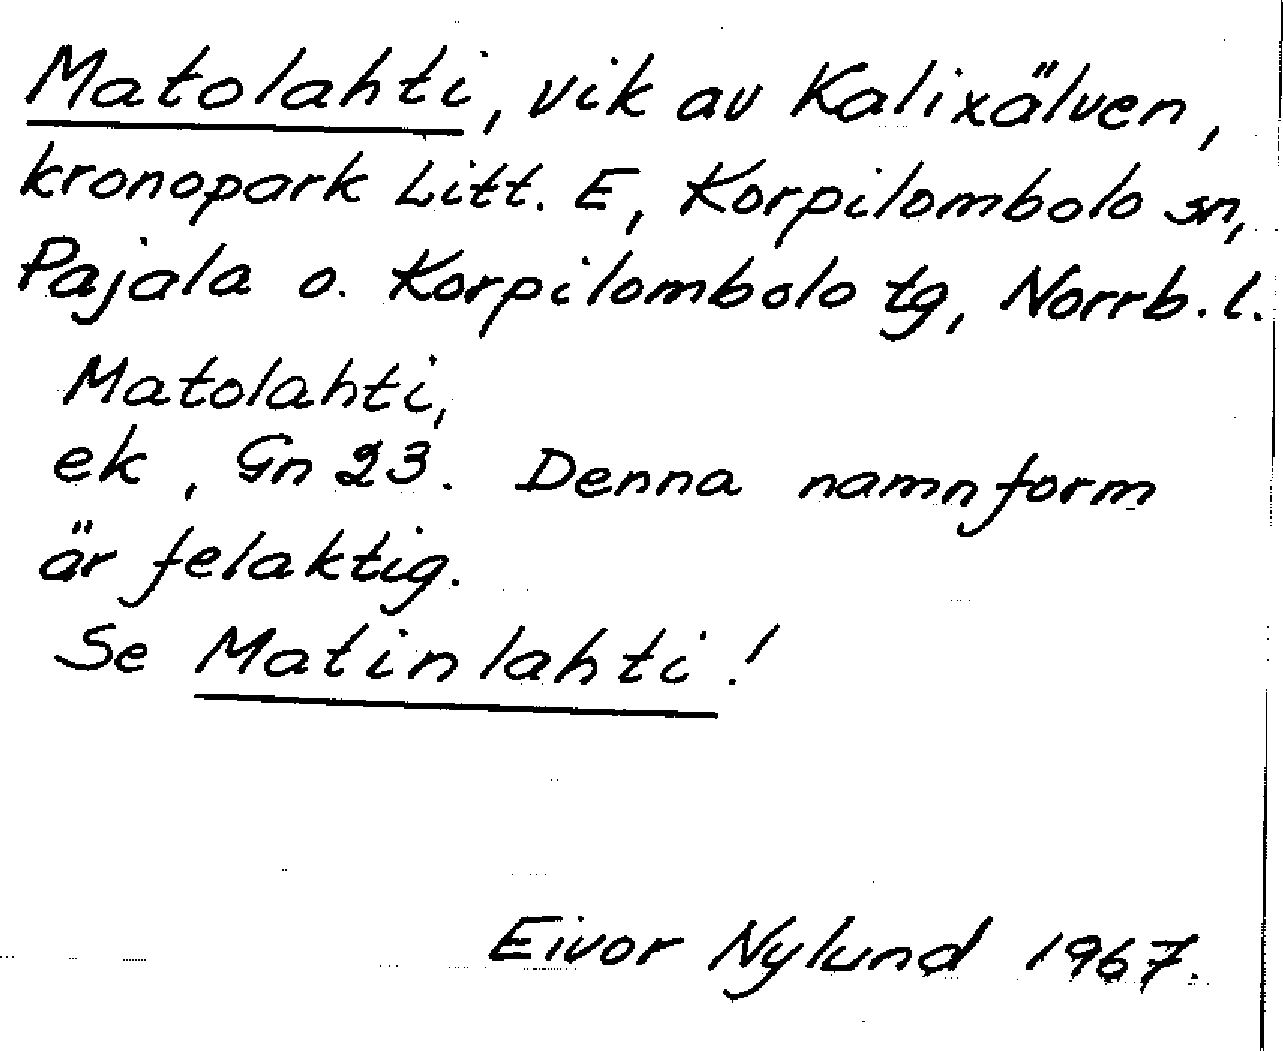 Matolahti, vik av Kalixälven,
kronopark Litt. E, Korpilombolo sn,
Pajala o. Korpilombolo tg, Norrb. l.
Matolahti,
ek, Gn 23. Denna namnform
är felaktig.
Se Matinlahti!
Eivor Nylund 1967.